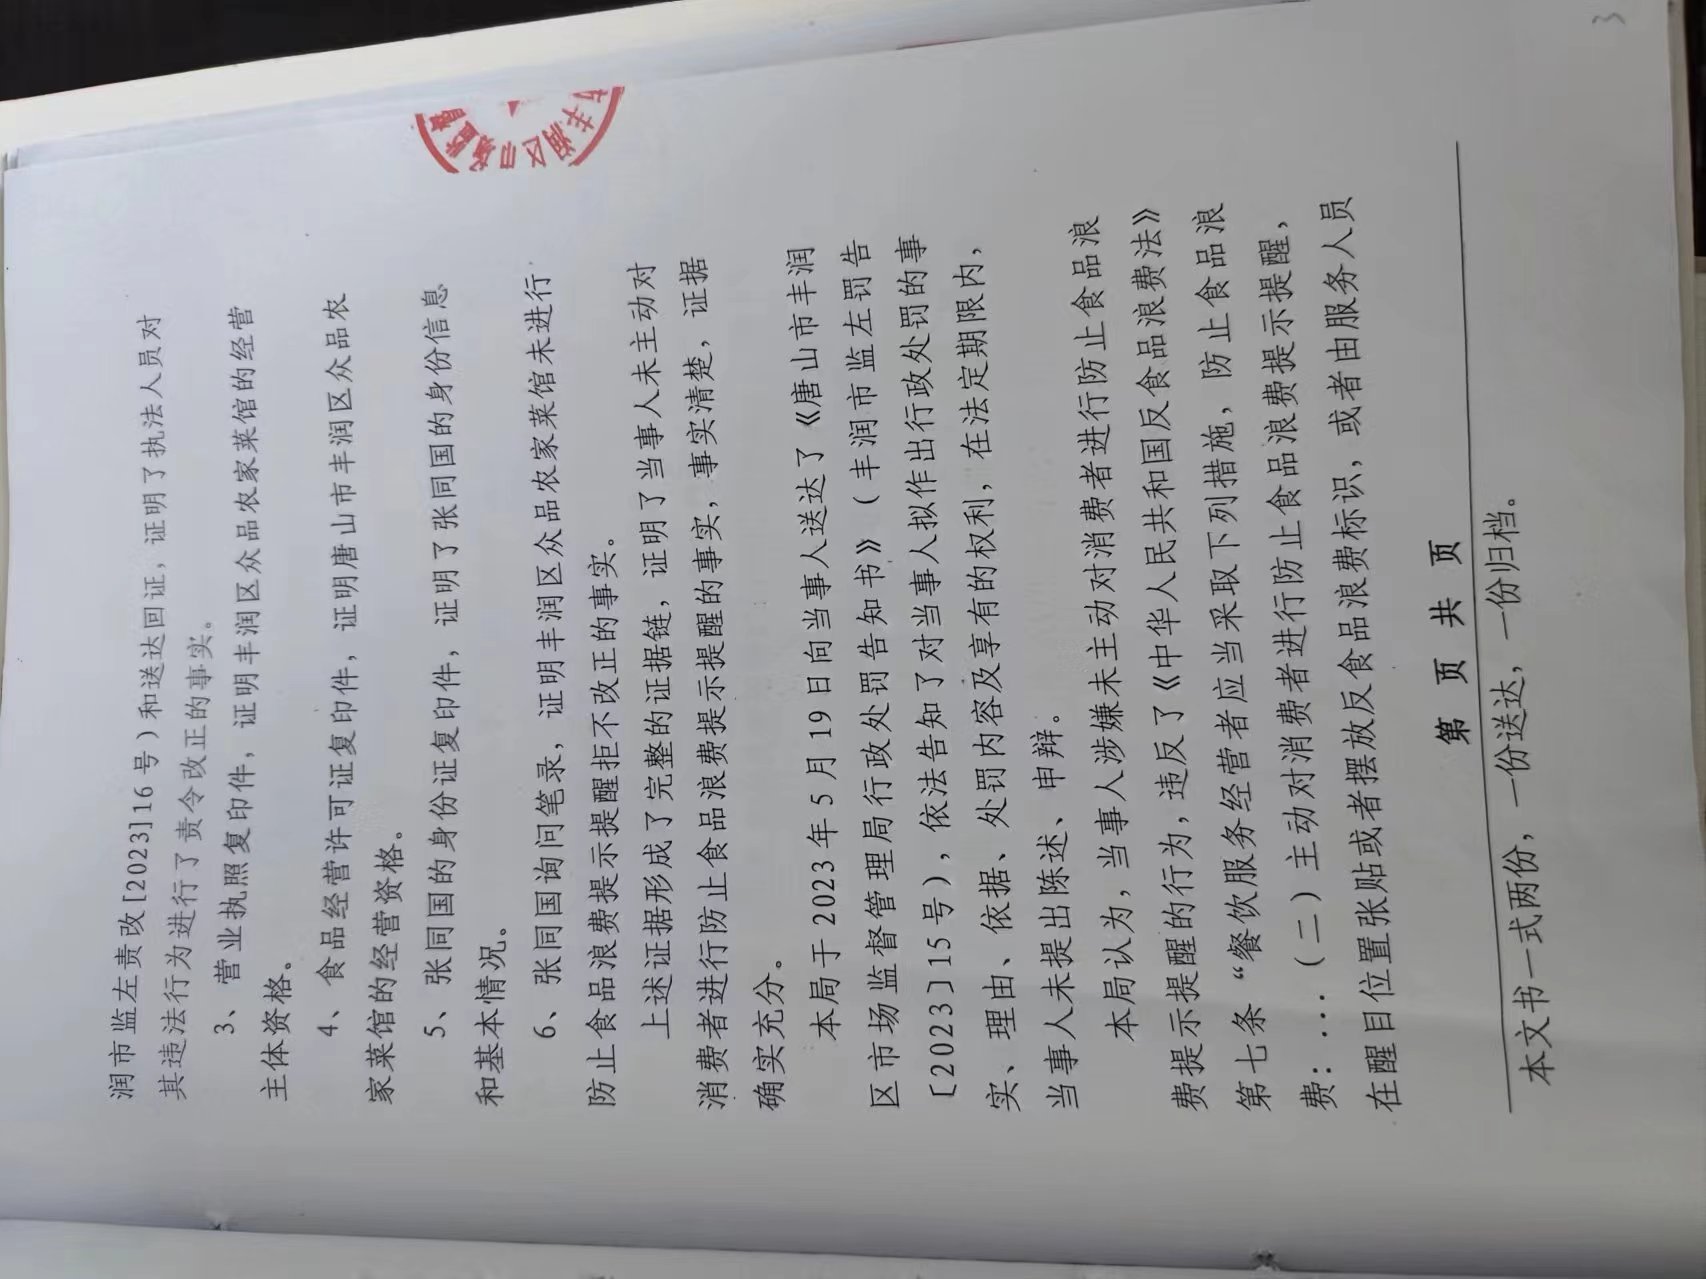 润市监左责改[2023]16号)和送达回证,证明了执法人员对
其违法行为进行了责令改正的事实。
3、营业执照复印件,证明丰润区众品农家菜馆的经营
主体资格。
4、食品经营许可证复印件,证明唐山市丰润区众品农
家菜馆的经营资格。
5、张同国的身份证复印件,证明了张同国的身份信息
和基本情况。
6、张同国询问笔录,证明丰润区众品农家菜馆未进行
防止食品浪费提示提醒拒不改正的事实。
上述证据形成了完整的证据链,证明了当事人未主动对
消费者进行防止食品浪费提示提醒的事实,事实清楚,证据
确实充分。
本局于2023年5月19日向当事人送达了《唐山市丰润
区市场监督管理局行政处罚告知书》(丰润市监左罚告
〔2023〕15号),依法告知了对当事人拟作出行政处罚的事
实、理由、依据、处罚内容及享有的权利,在法定期限内,
当事人未提出陈述、申辩。
本局认为,当事人涉嫌未主动对消费者进行防止食品浪
费提示提醒的行为,违反了《中华人民共和国反食品浪费法》
第七条“餐饮服务经营者应当采取下列措施,防止食品浪
费:...(二)主动对消费者进行防止食品浪费提示提醒,
在醒目位置张贴或者摆放反食品浪费标识,或者由服务人员
第 页 共 页
本文书一式两份,一份送达,一份归档。
3